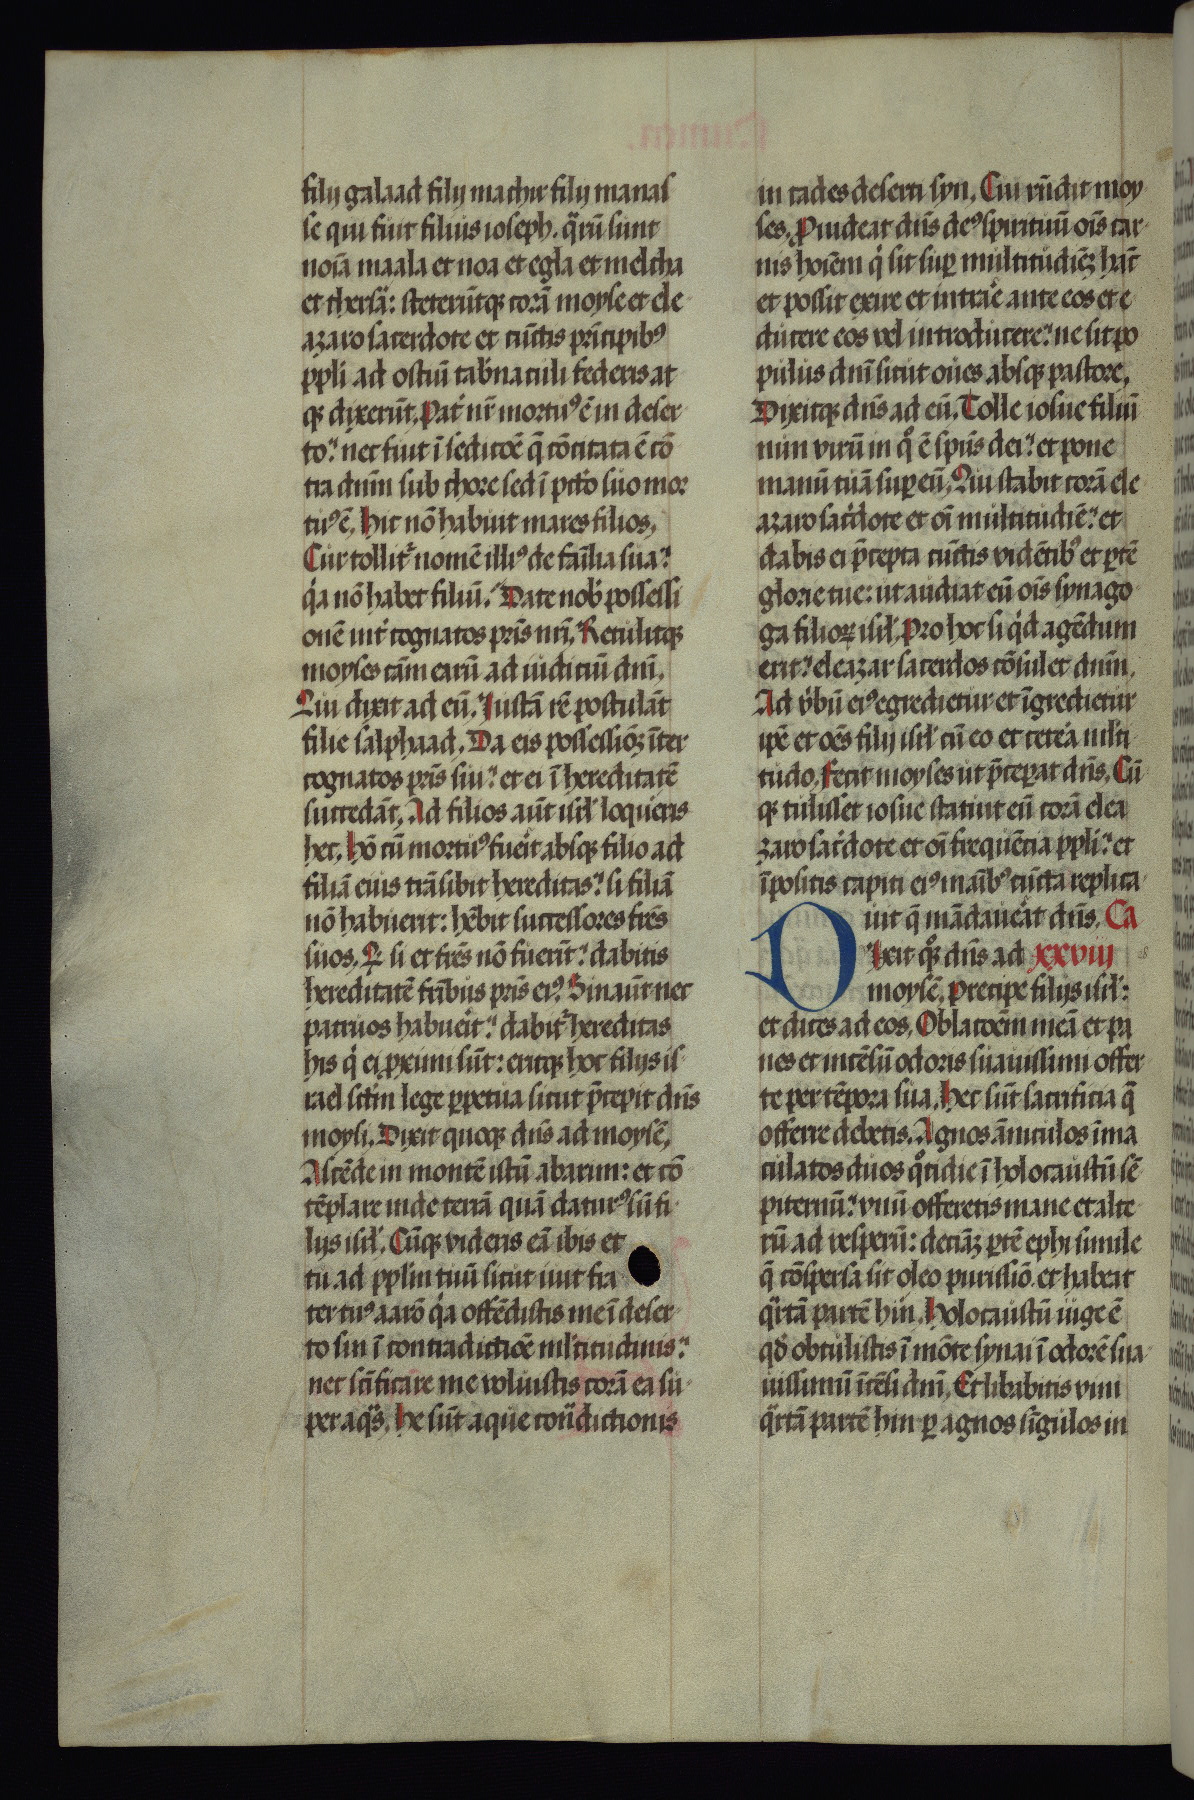 filij galaad filij machir filij manas
se qui fuit filius ioseph. q̃rũ sunt
noĩa maala et noa et egla et melcha
et thersã: steterũtq; corã moyse et ele
azaro sacerdote et cũctis prĩcipibꝰ
ppli ad ostiũ tab̃naculi federis at
q; dixerũt. Pat̃ nr̃ mortuꝰ ẽ in deser
to: nec fuit ĩ sedicõe q̃ cõcitata ẽ cõ
tra dnm̃ sub chore sed ĩ pctõ suo mor
tuꝰ ẽ. Hic nõ habuit mares filios.
Cur tollit̃ nomẽ illiꝰ de fam̃lia sua:
q̃a nõ habet filiũ. Date nob̃ possessi
onẽ int̃ cognatos pr̃is nr̃i. Retulitq;
moyses cãm earũ ad iudiciũ dnĩ.
Qui dixit ad eũ. Justã rẽ postulãt
filie salphaad. Da eis possessiõẽ ĩter
cognatos pr̃is sui: et ei ĩ hereditatẽ
succedãt. Ad filios aũt isrl̃ loqueris
hec. Hõ cũ mortuꝰ fuerit absq; filio ad
filiã eius trãsibit hereditas: si filiã
nõ habuerit: hẽbit successores fr̃es
suos. Qꝛ si et fr̃es nõ fuerĩt: dabitis
hereditatẽ fr̃ibus pr̃is eiꝰ. Sin aũt nec
patruos habuerit: dabit̃ hereditas
his q̃ ei ꝓximi sũt: eritq; hoc filijs is
rael scm̃ lege ꝑpetua sicut p̃cepit dñs
moysi. Dixit quoq; dñs ad moysẽ.
Ascẽde in montẽ istũ abarim: et cõ
tẽplare inde terrã quã daturꝰ sũ fi
lijs isrl̃. Cũq; videris eã ibis et
tu ad pplm̃ tuũ sicut iuit fra
ter tuꝰ aarõ q̃a offẽdistis me ĩ deser
to sin ĩ contradictiõe ml̃titudinis:
nec scĩficare me voluistis corã ea su
per aq̃s. He sũt aque cont̃dictionis
in cades deserti syn. Cui rñdit moy
ses. Prouideat dñs deꝰ spirituũ oĩs car
nis hoĩem q̃ sit suꝑ multitudiẽ hãc
et possit exire et intrar̃e ante eos et e
ducere eos vel introducere: ne sit po
pulus dnĩ sicut oues absq; pastore.
Dixitq; dñs ad eũ. Tolle iosue filiũ
nun virũ in q̊ ẽ spũs dei: et pone
manũ tuã suꝑ eũ. Qui stabit corã ele
azaro sac̃dote et oĩ multitudiẽ: et
dabis ei p̃cepta cũctis vidẽtibꝰ et ꝑtẽ
glorie tue: ut audiat eũ oĩs synago
ga filioꝝ isrl̃. Pro hoc si q̃d agẽdum
erit: eleazar sacerdos cõsulet dnm̃.
Ad ṽbũ eiꝰ egredietur et ĩgredietur
ipẽ et oẽs filij isrl̃ cũ eo et cetera ml̃ti
tudo. Fecit moyses ut p̃ceperat dñs. Cũ
q; tulisset iosue statuit eũ corã elea
zaro sac̃dote et oĩ frequẽcia ppli: et
ĩpositis capiti eiꝰ manĩbꝰ cũcta replica
uit q̃ mãdauerat dñs. Ca
Dixit q̊q; dñs ad XXVIII
moysẽ. Precipe filijs isrl̃:
et dices ad eos. Oblacõem meã et pa
nes et incẽsũ odoris suauissimi offer
te per tẽpora sua. Hec sũt sacrificia q̃
offerre debetis. Agnos ãniculos ĩma
culatos duos q̊tidie ĩ holocaustũ sẽ
piternũ: vnũ offeretis mane et alte
rũ ad vesperũ: deciãz ꝑtẽ ephi simile
q̃ cõspersa sit oleo purissiõ. et habeat
q̃rtã partẽ hin. Holocaustũ iuge ẽ
qd̃ obtulistis ĩ mõte synai ĩ odorẽ sua
uissimũ ĩcẽsi dnĩ. Et libabitis vini
q̃rtã partẽ hin ꝑ agnos sĩgulos in